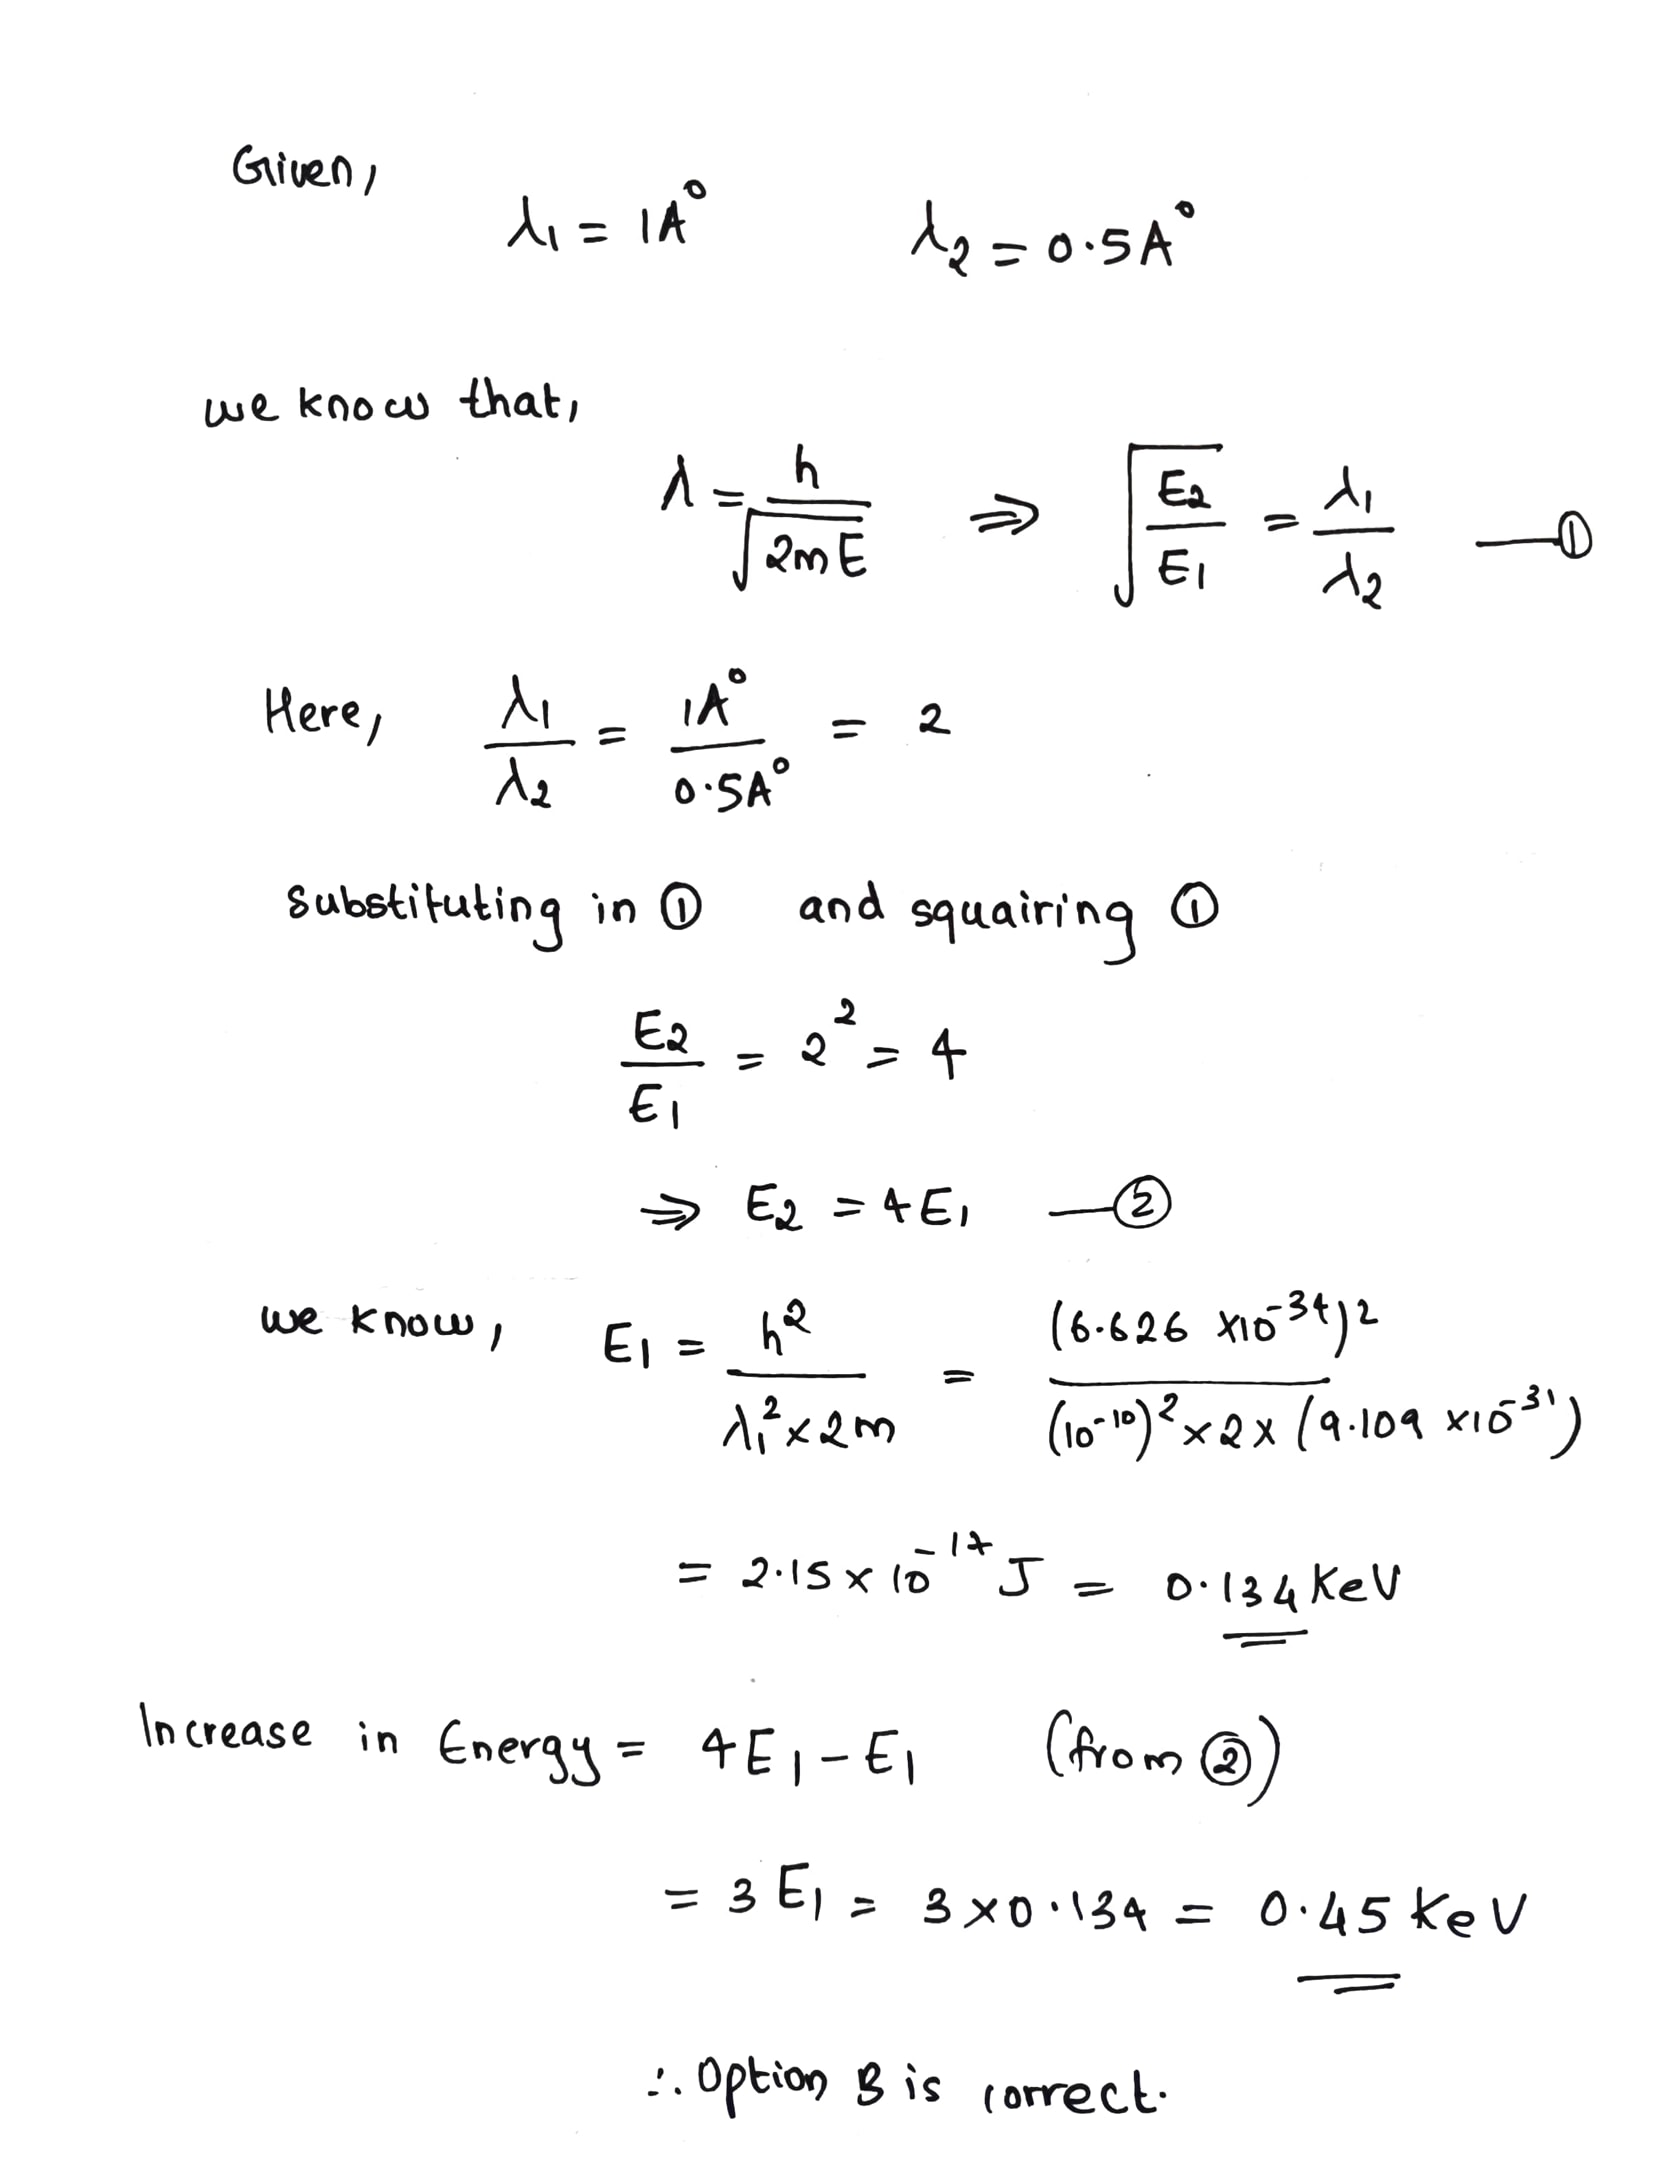 Given,
λ₁ = 1A° λ₂ = 0.5A°
we know that,
λ = h/√(2mE) ⇒ √(E₂/E₁) = λ₁/λ₂ —①
Here, λ₁/λ₂ = 1A°/0.5A° = 2
substituting in ① and squairing ①
E₂/E₁ = 2² = 4
⇒ E₂ = 4E₁ —②
we know, E₁ = h²/(λ₁² × 2m) = (6.626 × 10⁻³⁴)²/((10⁻¹⁰)² × 2 × (9.109 × 10⁻³¹))
= 2.15 × 10⁻¹⁷ J = 0.134 KeV
Increase in Energy = 4E₁ - E₁ (from ②)
= 3E₁ = 3 × 0.134 = 0.45 KeV
∴ Option B is correct.